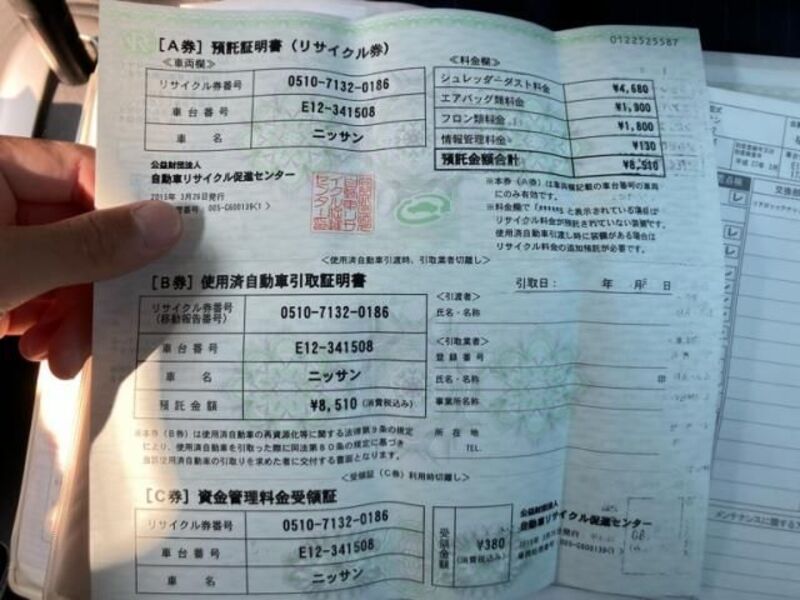 0122525587
[A券] 預託証明書(リサイクル券)
≪車両欄≫
リサイクル券番号 0510-7132-0186
車台番号 E12-341508
車名 ニッサン
≪料金欄≫
シュレッダーダスト料金 ¥4,680
エアバッグ類料金 ¥1,900
フロン類料金 ¥1,800
情報管理料金 ¥130
預託金額合計 ¥8,510
公益財団法人
自動車リサイクル促進センター
2015年 3月26日発行
005-C600139(1)
※本券(A券)は車両欄記載の車台番号の車両
にのみ有効です。
※料金欄で「*****」と表示されている項目は
リサイクル料金が預託されていない装備です。
使用済自動車引渡し時に装備がある場合は
リサイクル料金の追加預託が必要です。
<使用済自動車引渡時、引取業者切離し>
[B券] 使用済自動車引取証明書
引取日: 年 月 日
リサイクル券番号
(移動報告番号) 0510-7132-0186
車台番号 E12-341508
車名 ニッサン
預託金額 ¥8,510 (消費税込み)
<引渡者>
氏名・名称
<引取業者>
登録番号
氏名・名称 印
事業所名称
所在地
TEL.
※本券(B券)は使用済自動車の再資源化等に関する法律第9条の規定
により、使用済自動車を引取った際に同法第80条の規定に基づき
当該使用済自動車の引取りを求めた者に交付する書面となります。
<受領証(C券)利用時切離し>
[C券] 資金管理料金受領証
リサイクル券番号 0510-7132-0186
車台番号 E12-341508
車名 ニッサン
受領金額 ¥380
(消費税込み)
公益財団法人
自動車リサイクル促進センター
005-C600139(1)